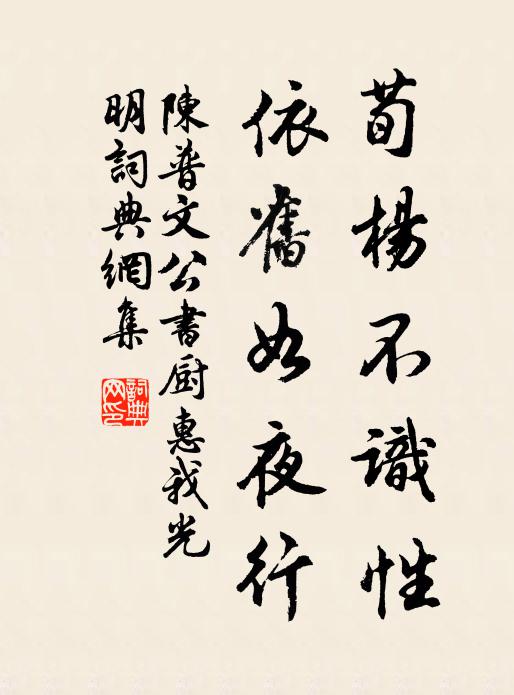 荀楊不識性
依舊如夜行
陳普文公書厨惠我光
明詞典網集
詞典网印